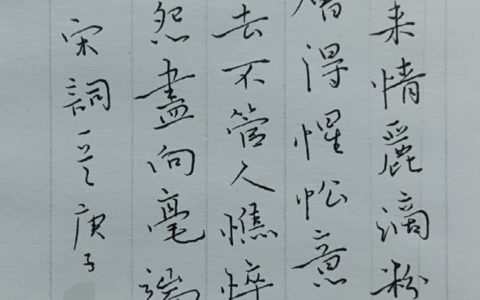 来情麗滴粉
得惺忪意
去不管人憔悴
怨盡向毫端
宋詞庚子